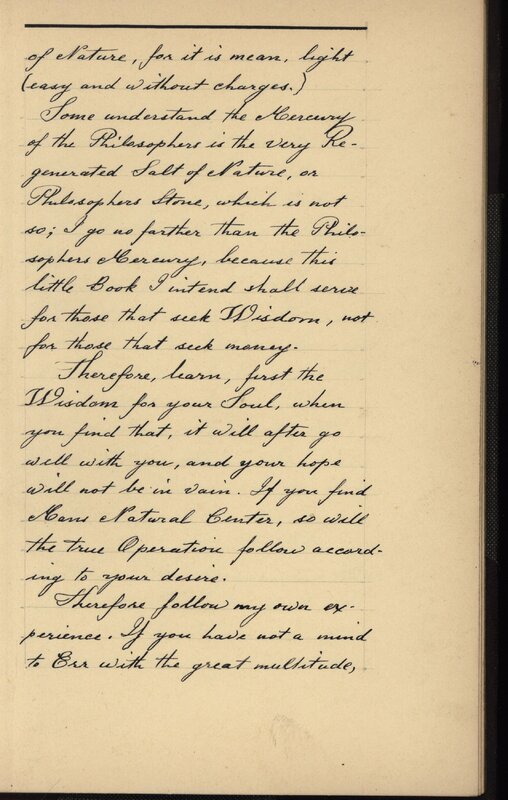 of Nature, for it is mean, light
(easy and without charges.)
Some understand the Mercury
of the Philosophers is the very Re-
generated Salt of Nature, or
Philosophers Stone, which is not
so; I go no farther than the Philo-
sophers Mercury, because this
little Book I intend shall serve
for those that seek Wisdom, not
for those that seek money.
Therefore, learn, first the
Wisdom for your Soul, when
you find that, it will after go
well with you, and your hope
will not be in vain. If you find
Mans Natural Center, so will
the true Operation follow accord-
ing to your desire.
Therefore follow my own ex-
perience. If you have not a mind
to Err with the great multitude,